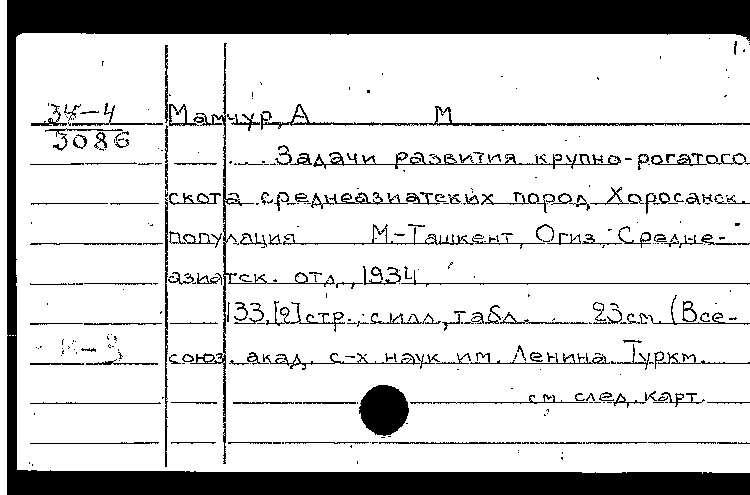 1.
34-4 Мамчур, А М
3086
... Задачи развития крупно-рогатого
скота среднеазиатских пород Хоросанск.
популяция М.-Ташкент, Огиз, Средне-
азиатск. отд., 1934.
133,[2]стр.; с илл., табл. 23см. (Все-
союз. акад. с-х наук им. Ленина. Туркм.
см. след. карт.